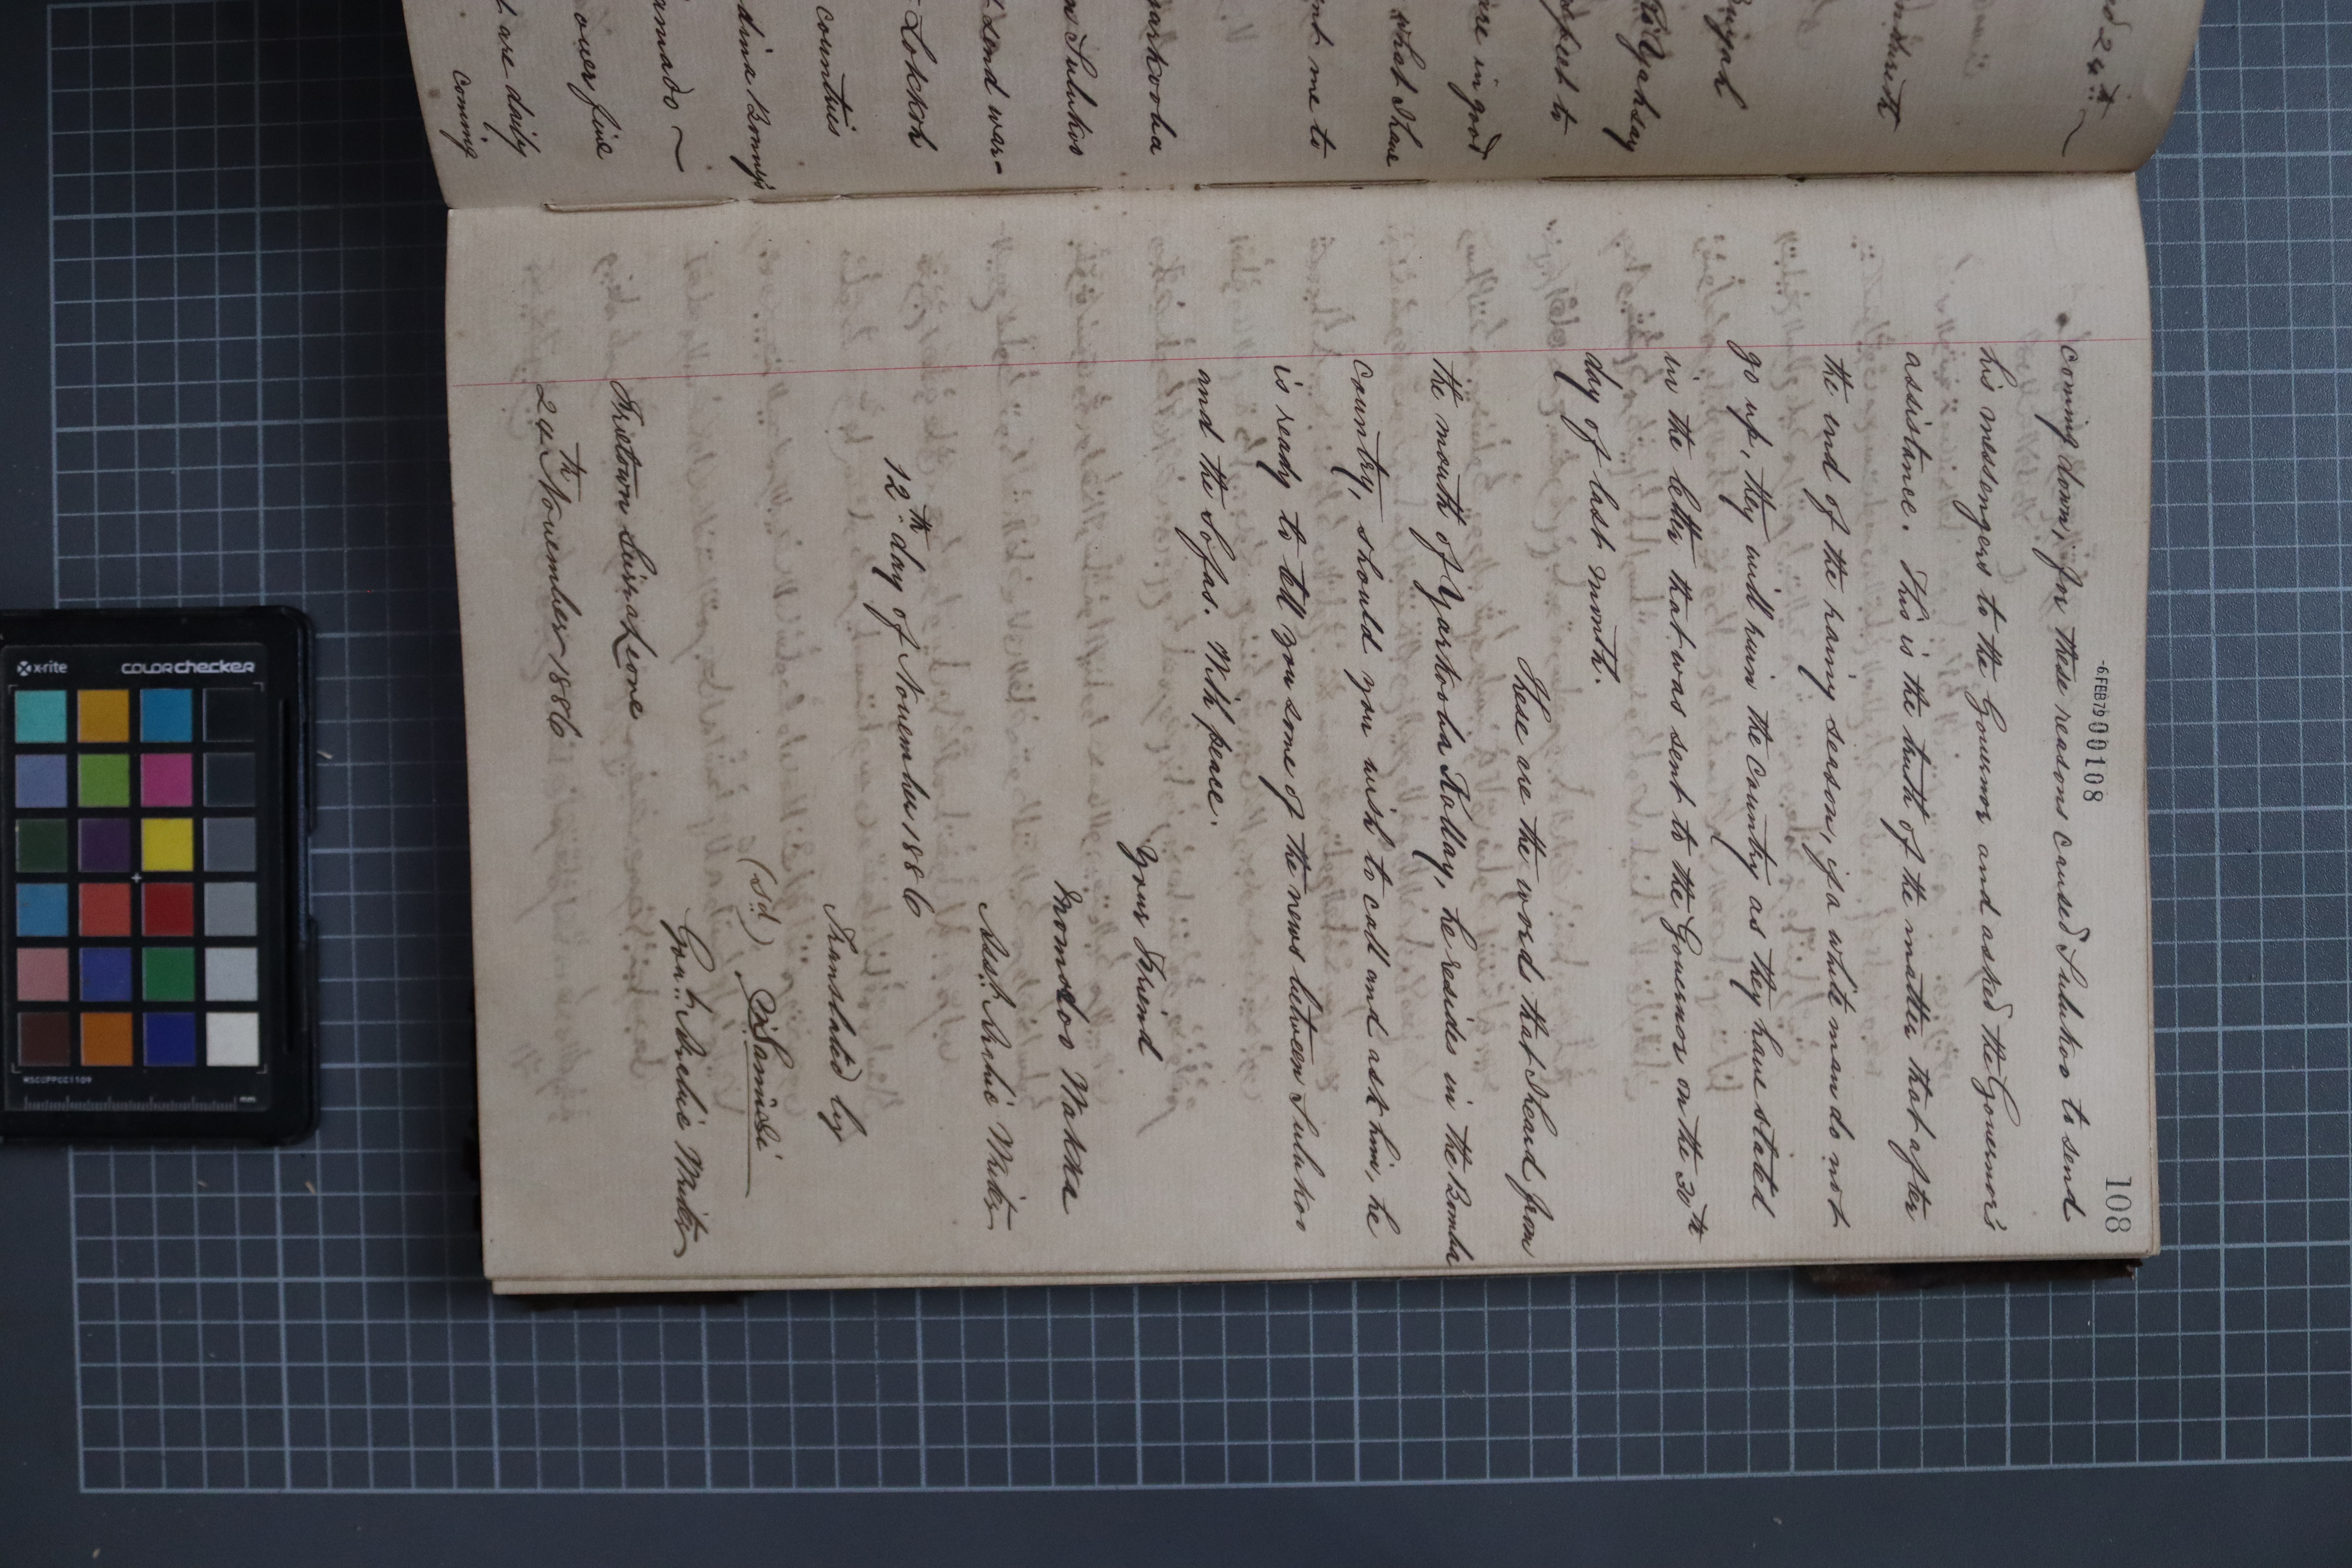 24th
Yahsay
are in good
what I have
me to
Sulukoo
send war-
Lokkoh
countries
Bonny's
over five
are daily
coming
-6 FEB 79 00108
108
coming down, for these reasons caused Sulukoo to send
his messengers to the Governor and asked the Governor's
assistance. This is the truth of the matter that after
the end of the rainy season, if a white man do not
go up, they will ruin the Country as they have stated
in the letter that was sent to the Governor on the 30th
day of last month.
These are the words that I heard from
the mouth of Yarkooba Kollay, he resides in the Bomba
Country, should you wish to call and ask him, he
is ready to tell you some of the news between Sulukoo
and the Sofas. With peace.
Your Friend
Momodoo Wakka
Asst Arabic Writer
12th day of November 1886
Translated by
(sd) Sanusi
Govt Arabic Writer
Freetown Sierra Leone
24th November 1886
x-rite
COLORchecker
MSCCPPCC1109
mm